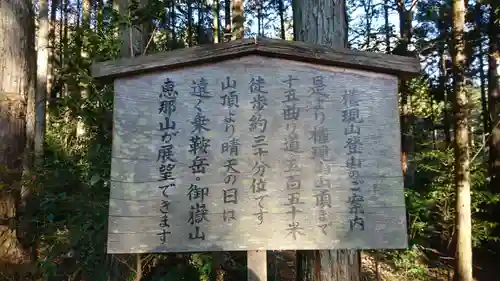 権現山登山のご案内
是より権現山頂まで
十五曲り道五百五十米
徒歩約三十分位です
山頂より晴天の日は
遠く乗鞍岳・御嶽山
恵那山が展望できます